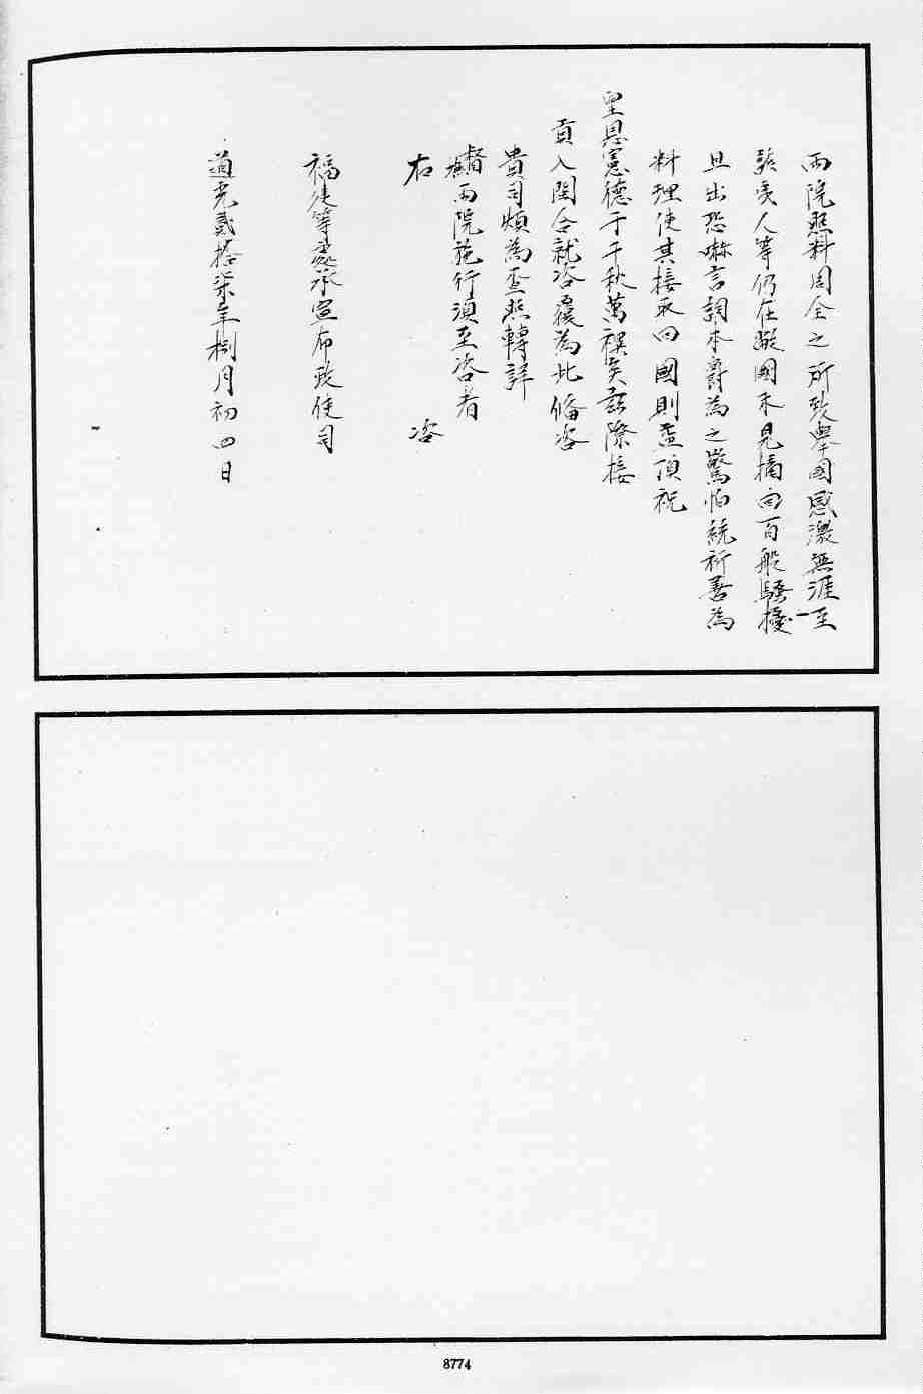 兩院照料周全之所致舉國感激無涯至
該夷人等仍在敝國未見擕回百般騷擾
且出恐嚇言詞本爵為之驚怕統祈善為
料理使其接取回國則盡頂祝
皇恩憲德于千秋萬禩矣玆際接
貢入閩合就咨覆為此備咨
貴司煩為查照轉詳
督撫兩院施行須至咨者
右 咨
福建等處承宣布政使司
道光貳拾柒年捌月初四日
8774